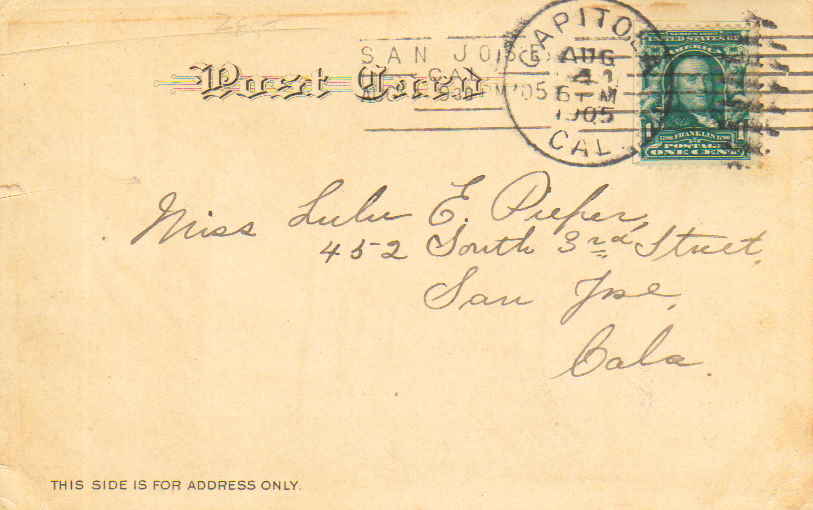 SAN JOSE
CAL
'05
Post Card
CAPITOLA
AUG
4
6 PM
1905
CAL.
UNITED STATES OF
AMERICA
1790 FRANKLIN 1790
POSTAGE
ONE CENT
Miss Lulu E. Pieper,
452 South 3rd Street,
San Jose,
Cala.
THIS SIDE IS FOR ADDRESS ONLY.